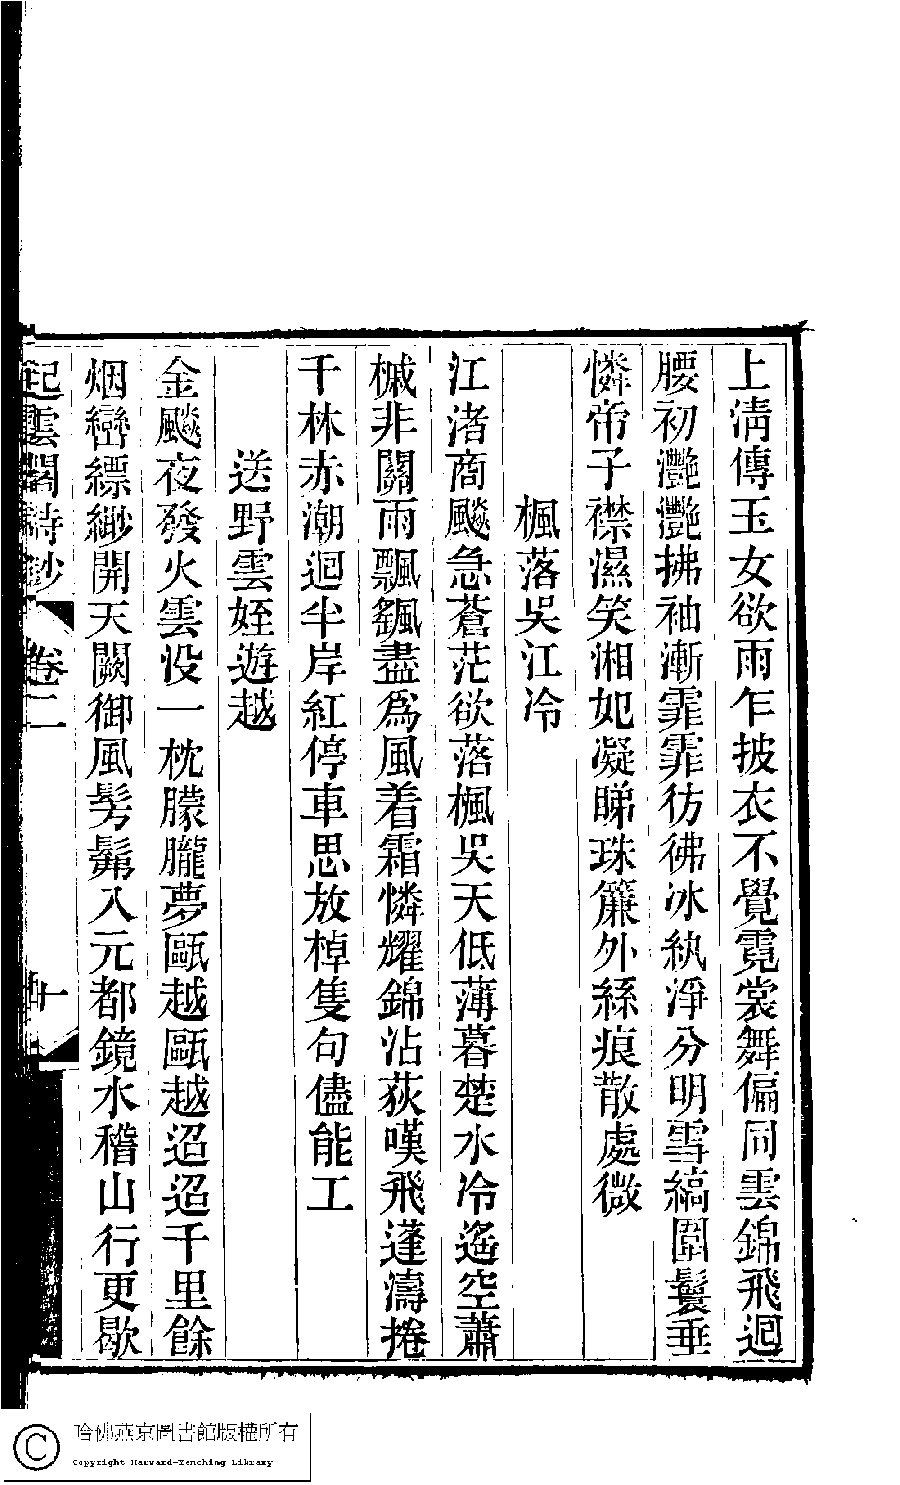 上清傳玉女欲雨乍披衣不覺霓裳舞偏同雲錦飛迴
腰初灔灔拂袖漸霏霏彷彿冰紈淨分明雪縞圍鬟垂
憐帝子襟濕笑湘妃凝睇珠簾外絲痕散處微
楓落吳江冷
江渚商飈急蒼茫欲落楓吳天低薄暮楚水冷遙空蕭
槭非關雨飄颻盡爲風着霜憐耀錦沾荻嘆飛蓬濤捲
千林赤潮迴半岸紅停車思放棹隻句儘能工
送野雲姪遊越
金飈夜發火雲没一枕朦朧夢甌越甌越迢迢千里餘
烟巒縹緲開天闕御風髣髴入元都鏡水稽山行更歇
起雲閣詩鈔
卷二
十
哈佛燕京圖書館版權所有
Copyright Harvard-Yenching Library